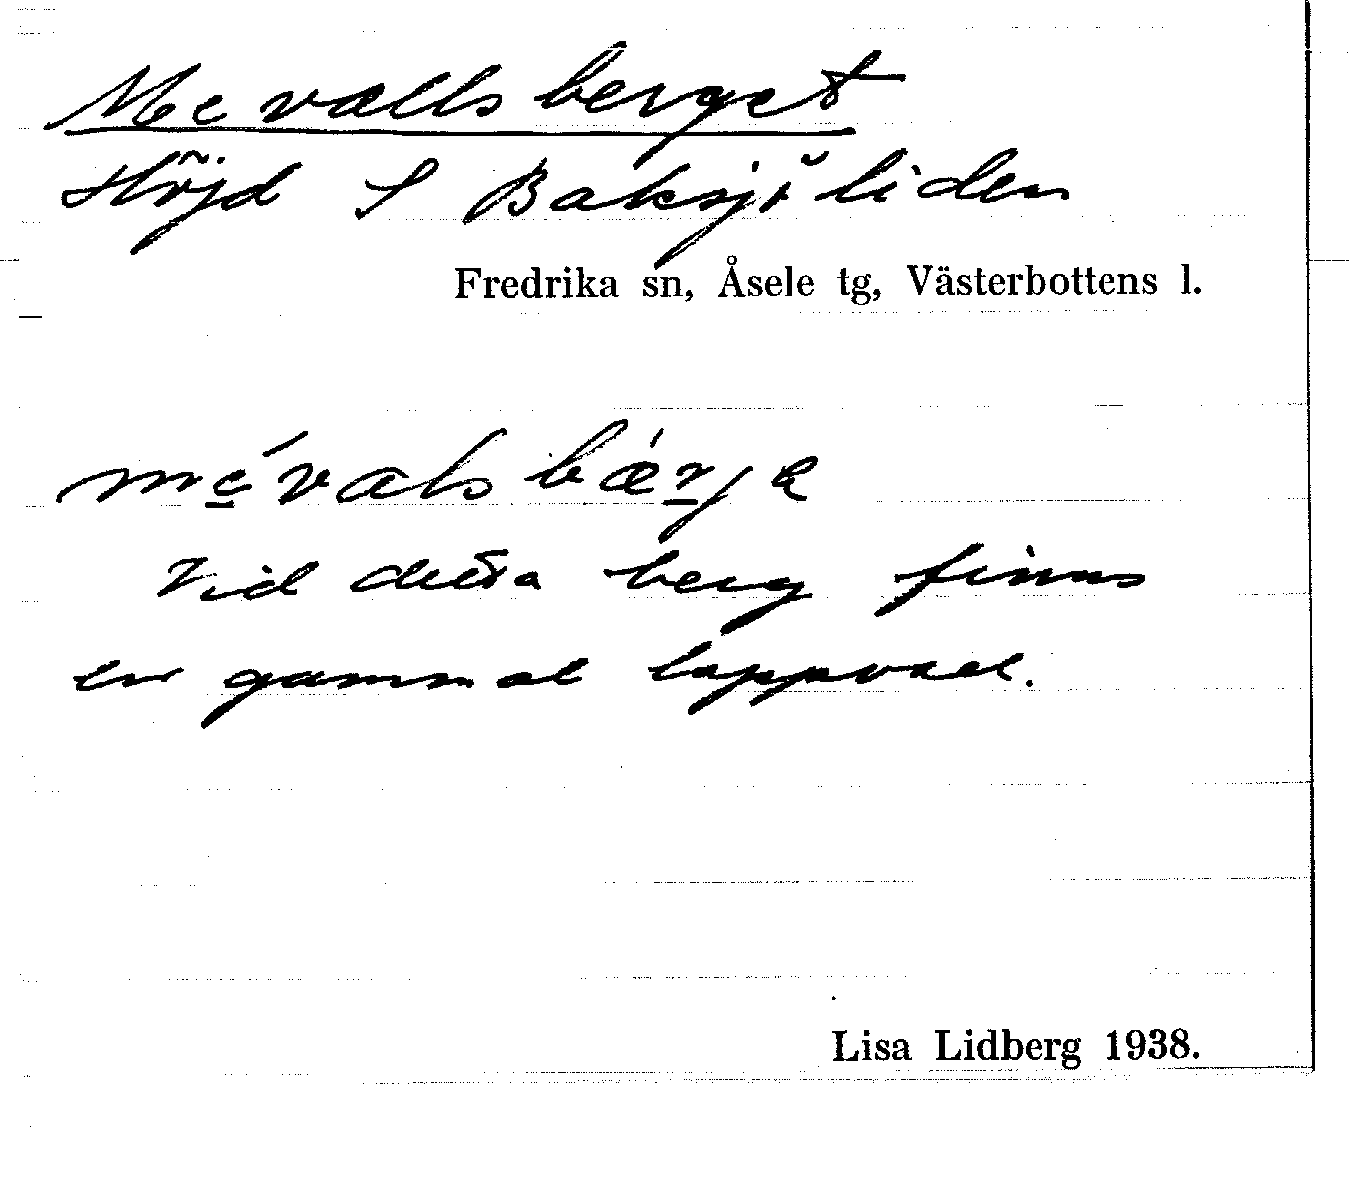 Mevallsberget
Höjd S Baksjöliden
Fredrika sn, Åsele tg, Västerbottens l.
mé̱valsbæ̀ṟjɐ
Vid detta berg finns
en gammal lappvall.
Lisa Lidberg 1938.